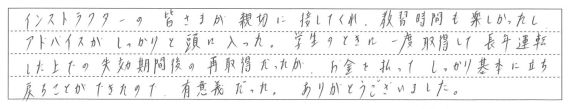 インストラクターの皆さまが親切に接してくれ、教習時間も楽しかったし
アドバイスがしっかりと頭に入った。学生のときに一度取得して長年運転
した上での失効期間後の再取得だったが、お金を払ってしっかり基本に立ち
戻ることができたので、有意義だった。ありがとうございました。